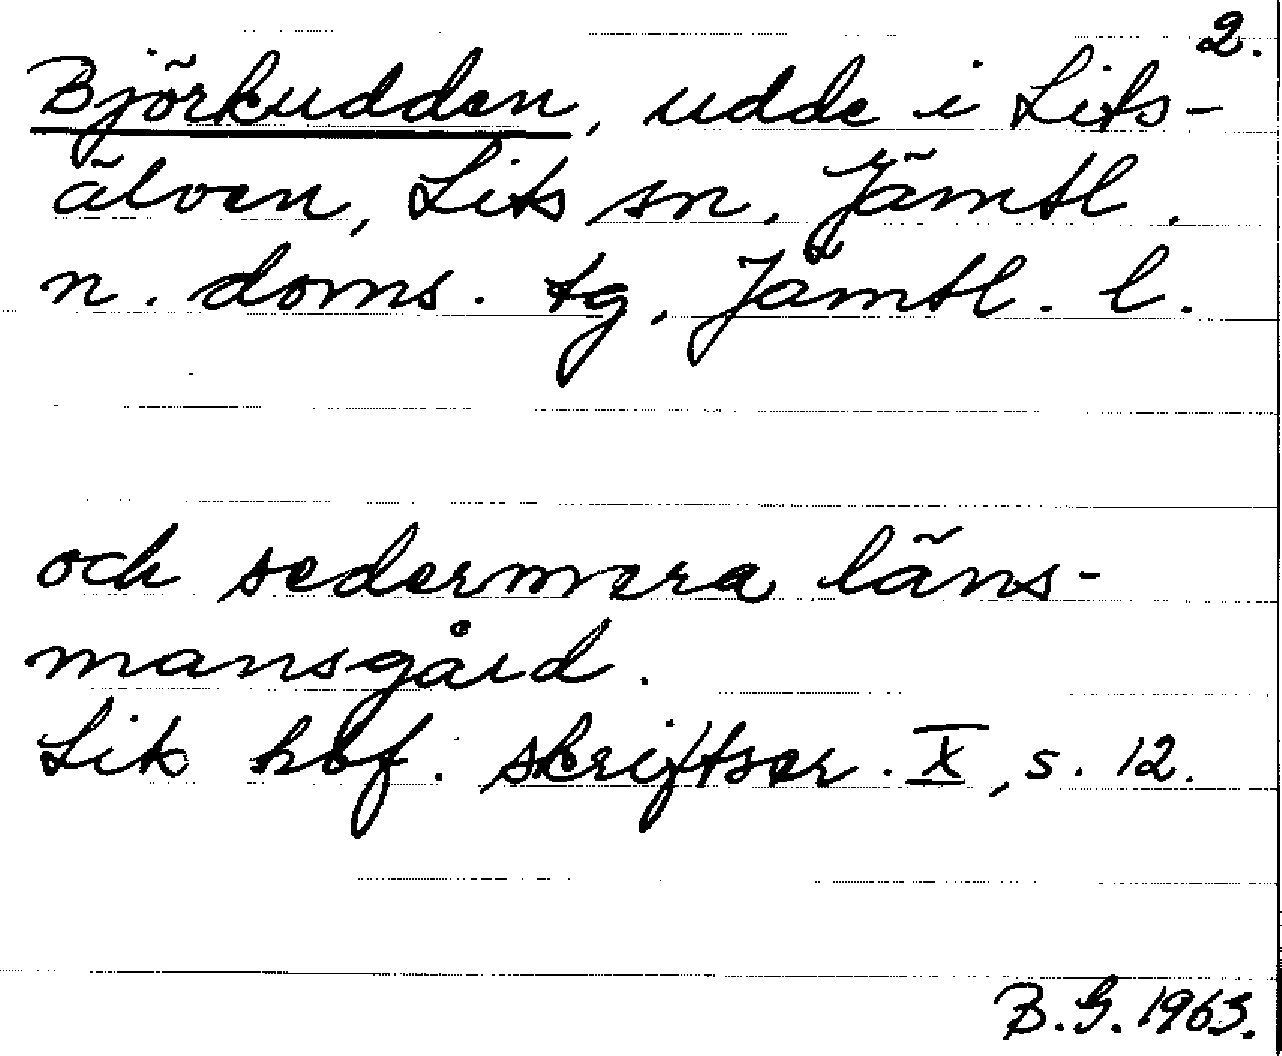 2.
Björkudden, udde i Lits-
älven, Lits sn, Jämtl.
n. doms. tg, Jämtl. l.
och sedermera läns-
mansgård.
Lits hbf. skriftser. X, s. 12.
B.G. 1963.